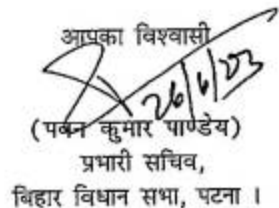 आपका विश्वासी
26/6/03
(पवन कुमार पाण्डेय)
प्रभारी सचिव,
बिहार विधान सभा, पटना ।